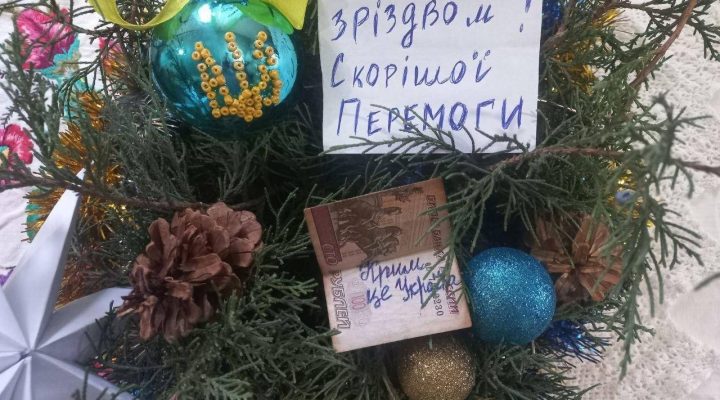 З РІЗДВОМ !
СКОРІШОЇ
ПЕРЕМОГИ
Крим
це Україна
СТО РУБЛЕЙ